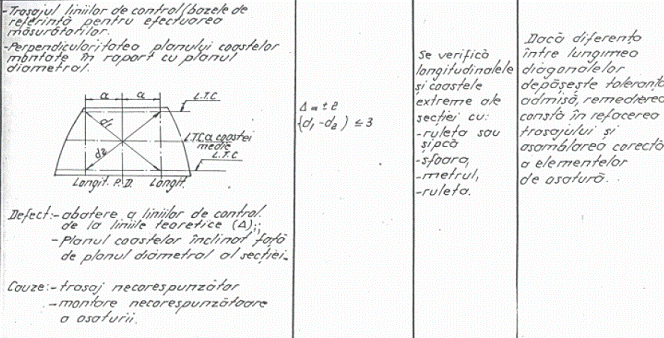 -Trasajul liniilor de control (bazele de
referință pentru efectuarea
măsurătorilor.
-Perpendicularitatea planului coastelor
montate în raport cu planul
diametral.
a a
L.T.C
d1
L.T.C a coastei
medie
d2
L.T.C
Longit. P.D. Longit.
Defect:-abatere a liniilor de control
de la liniile teoretice (Δ);
-Planul coastelor înclinat față
de planul diametral al secției.
Cauze:-trasaj necorespunzător
-montare necorespunzătoare
a osaturii.
Δ = ± 2
(d1 -d2 ) ≤ 3
Se verifică
longitudinalele
și coastele
extreme ale
secției cu:
-ruleta sau
șipcă
-sfoara,
-metrul,
-ruleta.
Dacă diferența
între lungimea
diagonalelor
depășește toleranța
admisă, remedierea
constă în refacerea
trasajului și
asamblarea corectă
a elementelor
de osatură.